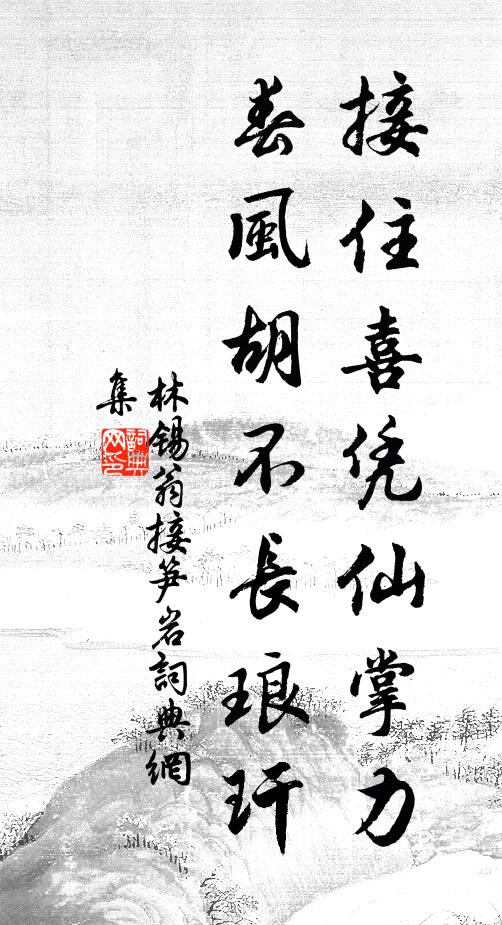 接住喜凭仙掌力
春風胡不長琅玕
林錫翁接笋岩詞典網
集
詞典網印